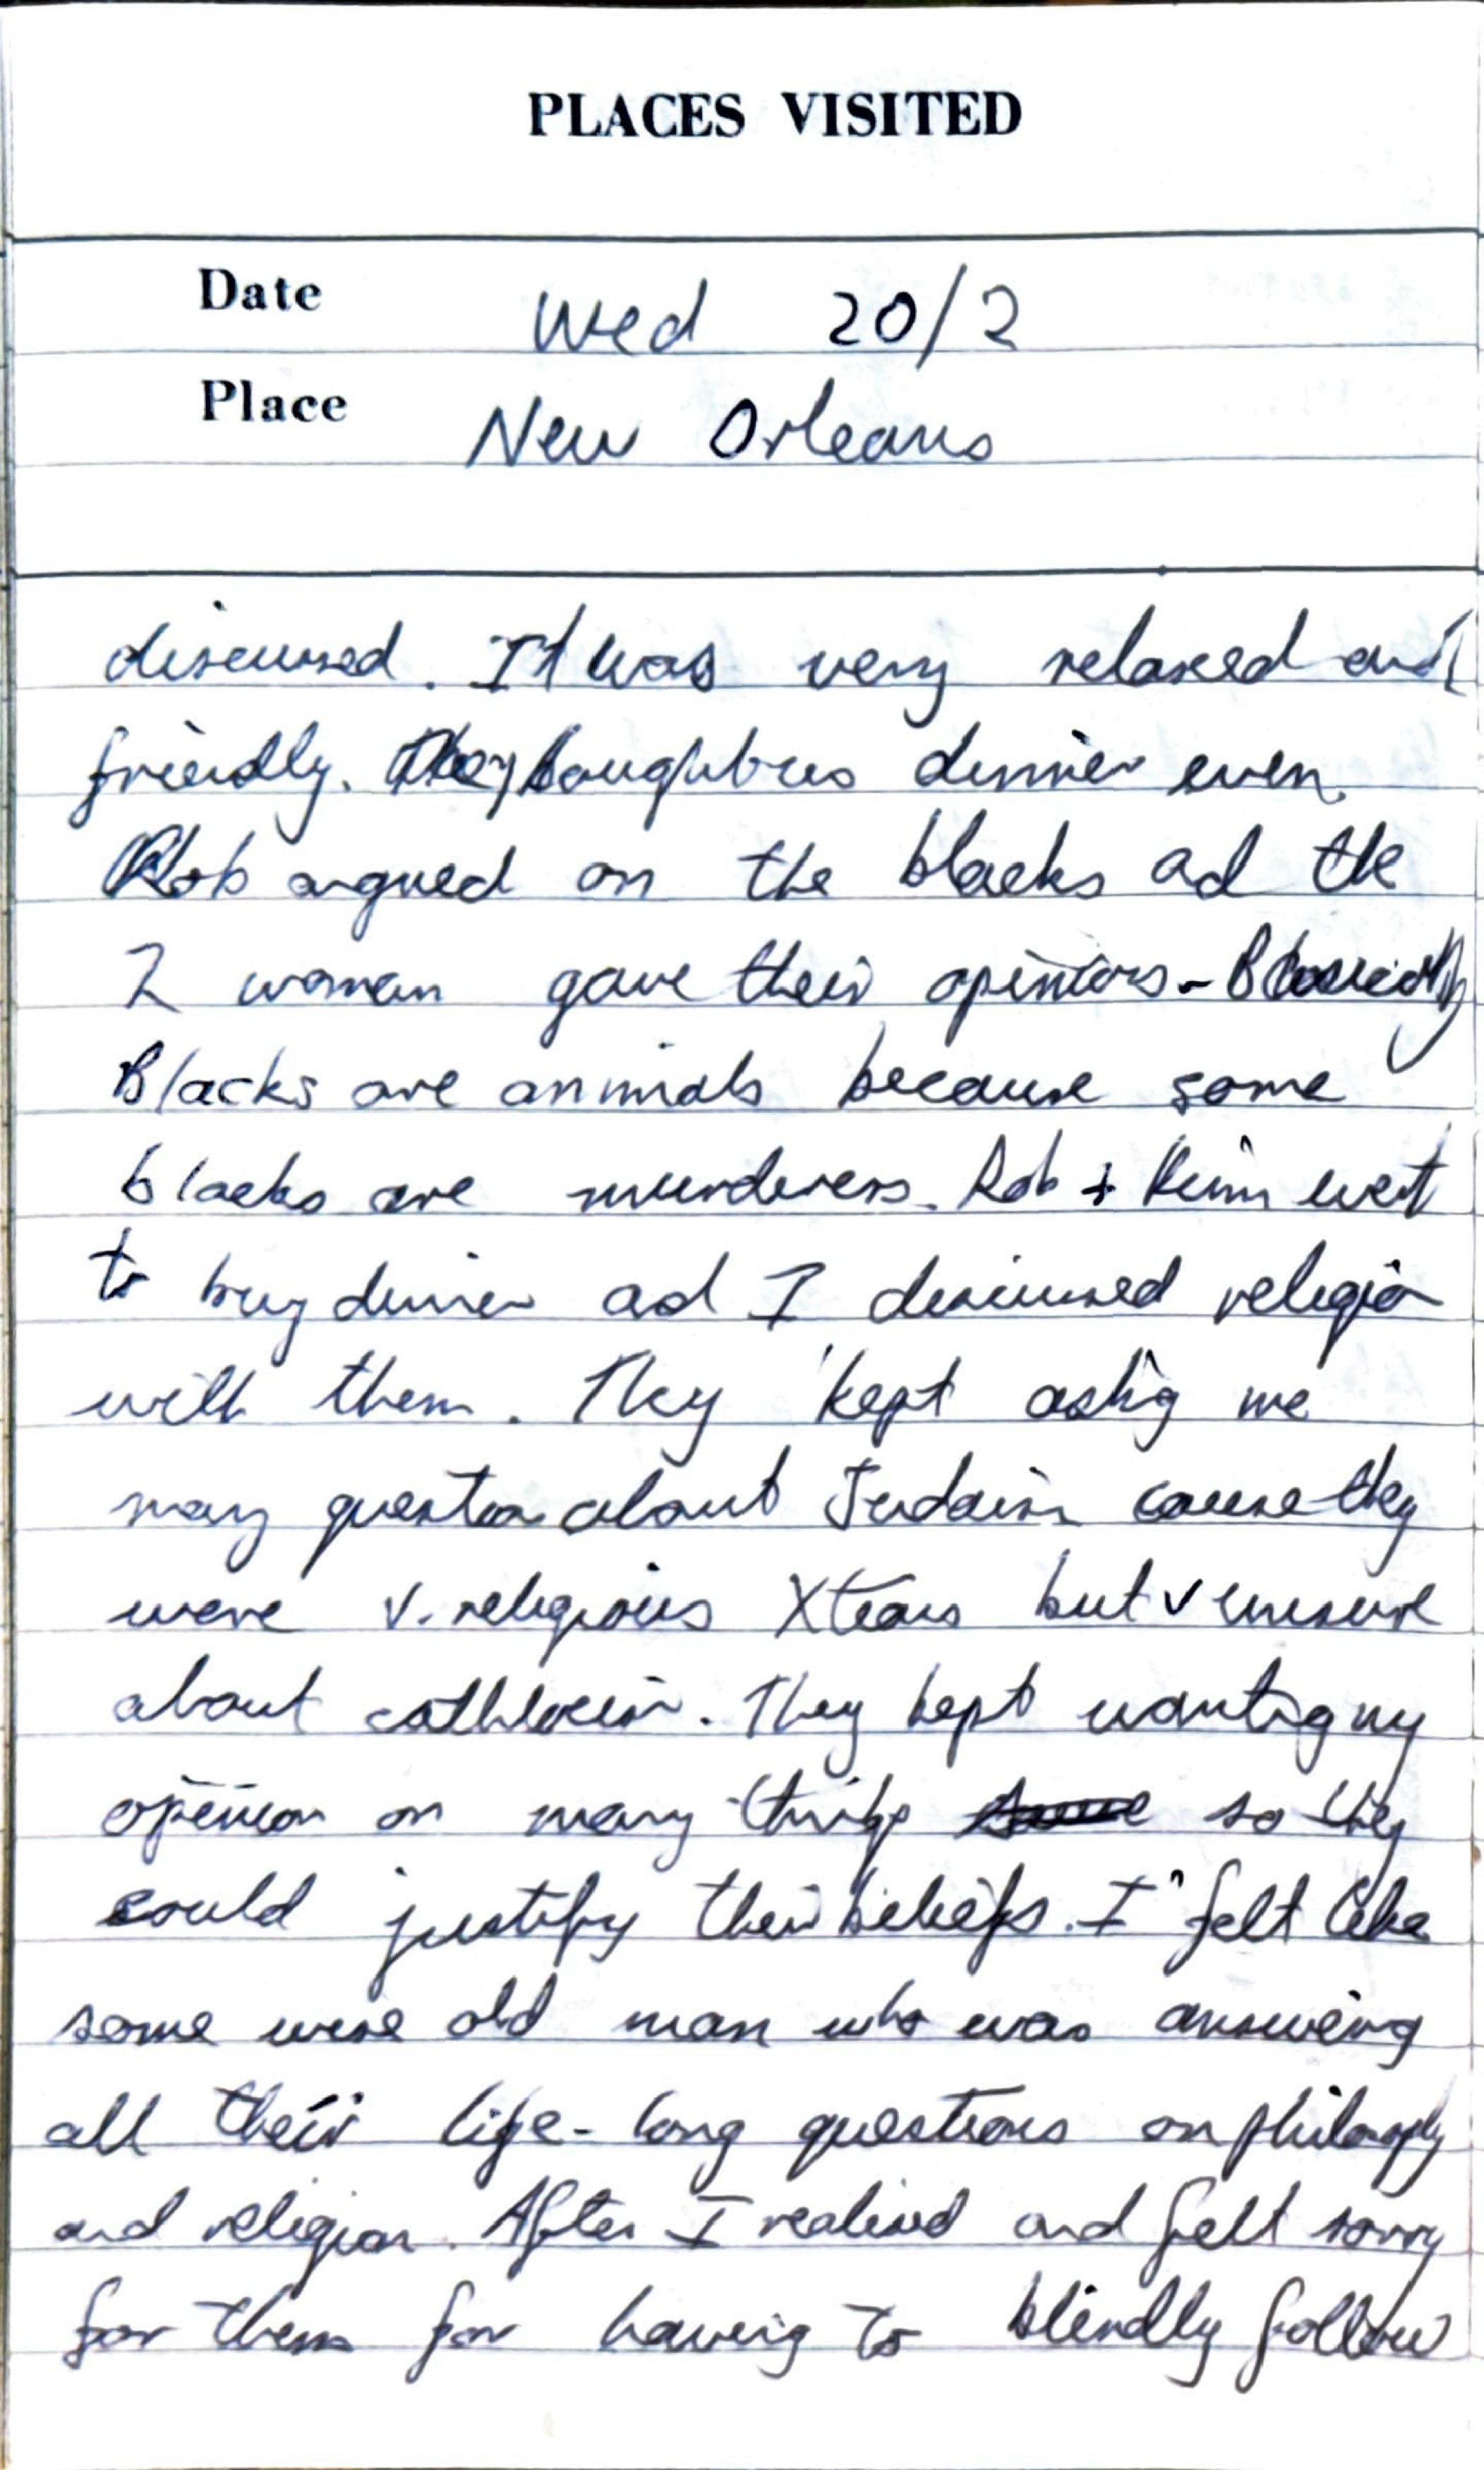 PLACES VISITED
Date Wed 20/2
Place New Orleans
discussed. It was very relaxed and
friendly. They bought us dinner even.
Rob argued on the blacks ad the
2 woman gave their opinions - Basically
Blacks are animals because some
blacks are murderers. Rob + Kim went
to buy dinner ad I discussed religion
with them. They kept askig me
many question about Judaism cause they
were v. religious Xtians but v unsure
about . They kept wantig my
opinion on many things so they
could justify their beliefs. I felt like
some wise old man who was answering
all their life-long questions on philosophy
and religion. After I realised and felt sorry
for them for having to blindly follow